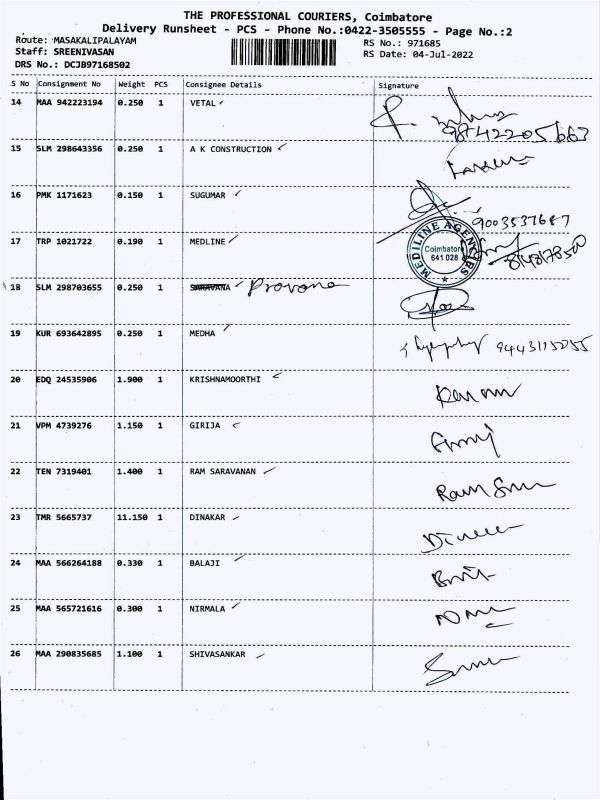 THE PROFESSIONAL COURIERS, Coimbatore
Delivery Runsheet - PCS - Phone No.:0422-3505555 - Page No.:2
Route: MASAKALIPALAYAM
RS No.: 971685
Staff: SREENIVASAN
RS Date: 04-Jul-2022
DRS No.: DCJB97168502
S No Consignment No Weight PCS Consignee Details Signature
14 MAA 942223194 0.250 1 VETAL
15 SLM 298643356 0.250 1 A K CONSTRUCTION
16 PMK 1171623 0.150 1 SUGUMAR
9003537687
17 TRP 1021722 0.190 1 MEDLINE
MEDILINE AGENCIES
Coimbatore
641 028
18 SLM 298703655 0.250 1 SARAVANA Provona
19 KUR 693642895 0.250 1 MEDHA
20 EDQ 24535906 1.900 1 KRISHNAMOORTHI
21 VPM 4739276 1.150 1 GIRIJA
22 TEN 7319401 1.400 1 RAM SARAVANAN
23 TMR 5665737 11.150 1 DINAKAR
24 MAA 566264188 0.330 1 BALAJI
25 MAA 565721616 0.300 1 NIRMALA
26 MAA 290835685 1.100 1 SHIVASANKAR